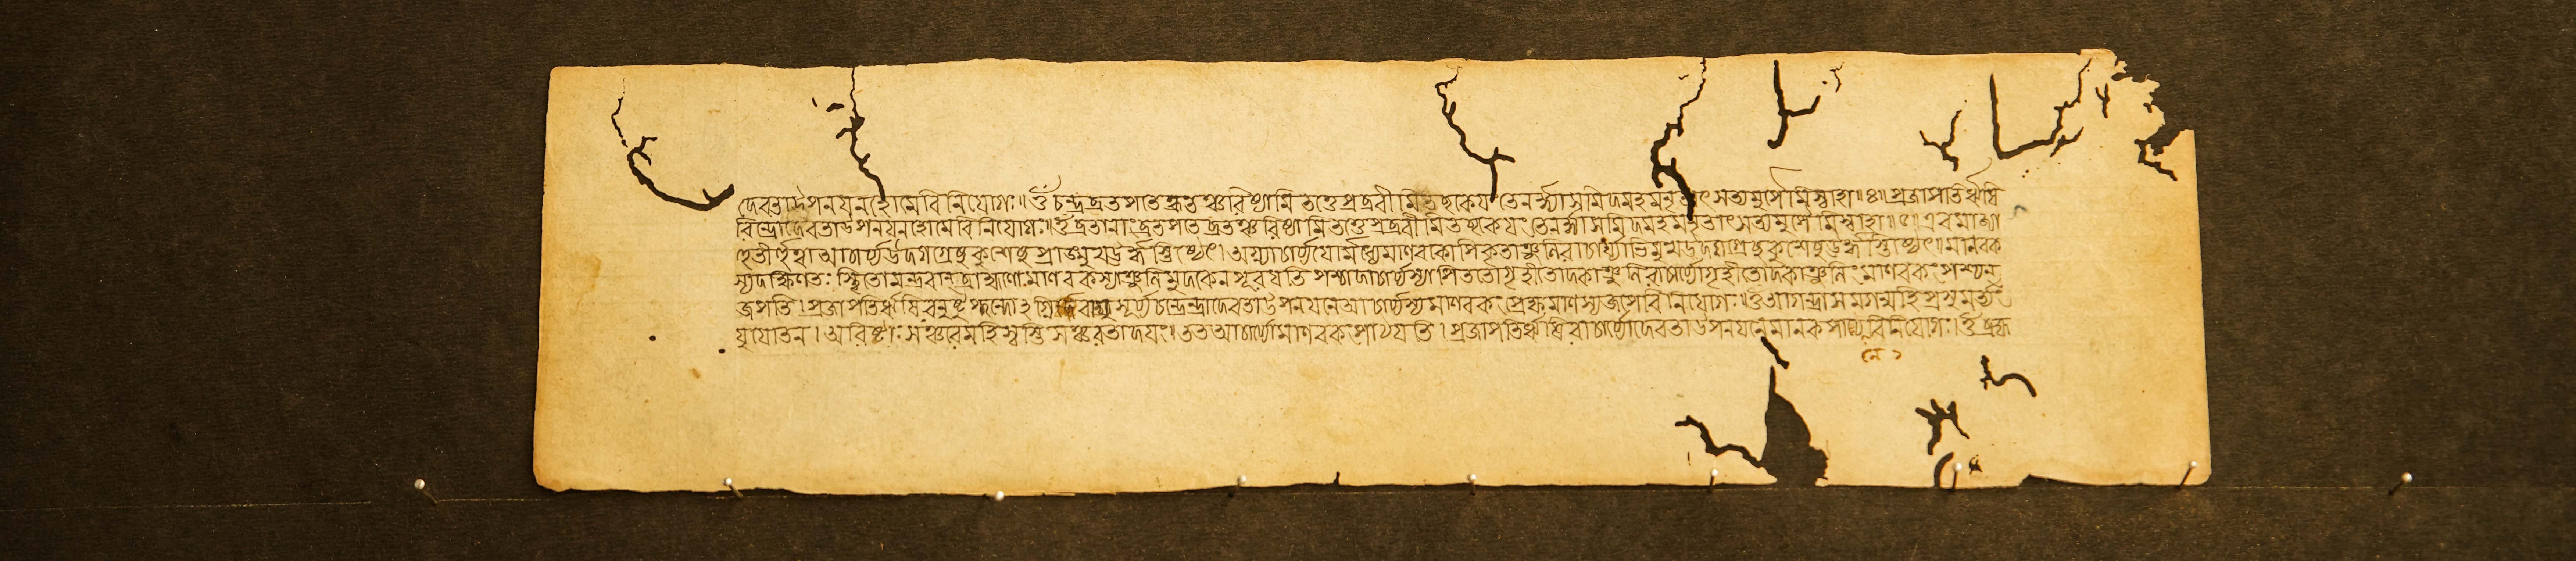 দেবতাউপনয়নহোমেবিনিয়োগঃ॥ওঁচন্দ্রব্রতপতেব্রতঞ্চরিষ্যামিতত্তেপ্রব্রবীমিতচ্ছকেয়ংতেনর্দ্ধ্যাসমিদমহমনৃতাৎসত্যমুপৈমিস্বাহা॥৪॥প্রজাপতিরৃষি
রিন্দ্রোদেবতাউপনয়নহোমেবিনিয়োগঃ॥ওঁব্রতানাংব্রতপতেব্রতঞ্চরিষ্যামিতত্তেপ্রব্রবীমিতচ্ছকেয়ংতেনর্দ্ধ্যাসমিদমহমনৃতাৎসত্যমুপৈমিস্বাহা॥৫॥এবমাজ্যা
হুতীর্হুত্বাআচার্য্যউদগগ্রেষুকুশেষুপ্রাঙ্মুখঊর্দ্ধ্বস্তিষ্ঠেৎ।অগ্ন্যাচার্য্যয়োর্মধ্যেমাণবকোপিকৃতাঞ্জলিরাচার্য্যাভিমুখউদগগ্রেষুকুশেষুঊর্দ্ধ্বস্তিষ্ঠেৎ॥মানবক
স্যদক্ষিণতঃস্থিতোমন্ত্রবান্ব্রাহ্মণোমাণবকস্যাঞ্জলিমুদকেনপূরয়তিপশ্চাদাচার্য্যস্যাপিততোগৃহীতোদকাঞ্জলিরাচার্য্যোগৃহীতোদকাঞ্জলিংমাণবকংপশ্যন্
জপতি।প্রজাপতিরৃষি সূর্য্যচন্দ্রেন্দ্রাদেবতাউপনয়নেআচার্য্যস্যমাণবকংপ্রেক্ষমাণস্যজপেবিনিয়োগঃ॥ওঁআগন্ত্রাসমগন্মহিপ্রসুমর্ত্যং
যুয়োতন।অরিষ্টাঃসঞ্চরেমহিস্বস্তিসঞ্চরতাদয়ং॥ততআচার্য্যোমাণবকংপাঠয়তি।প্রজাপতিরৃষিরাচার্য্যোদেবতাউপনয়নেমানবকপাঠেবিনিয়োগঃ।ওঁব্রহ্ম